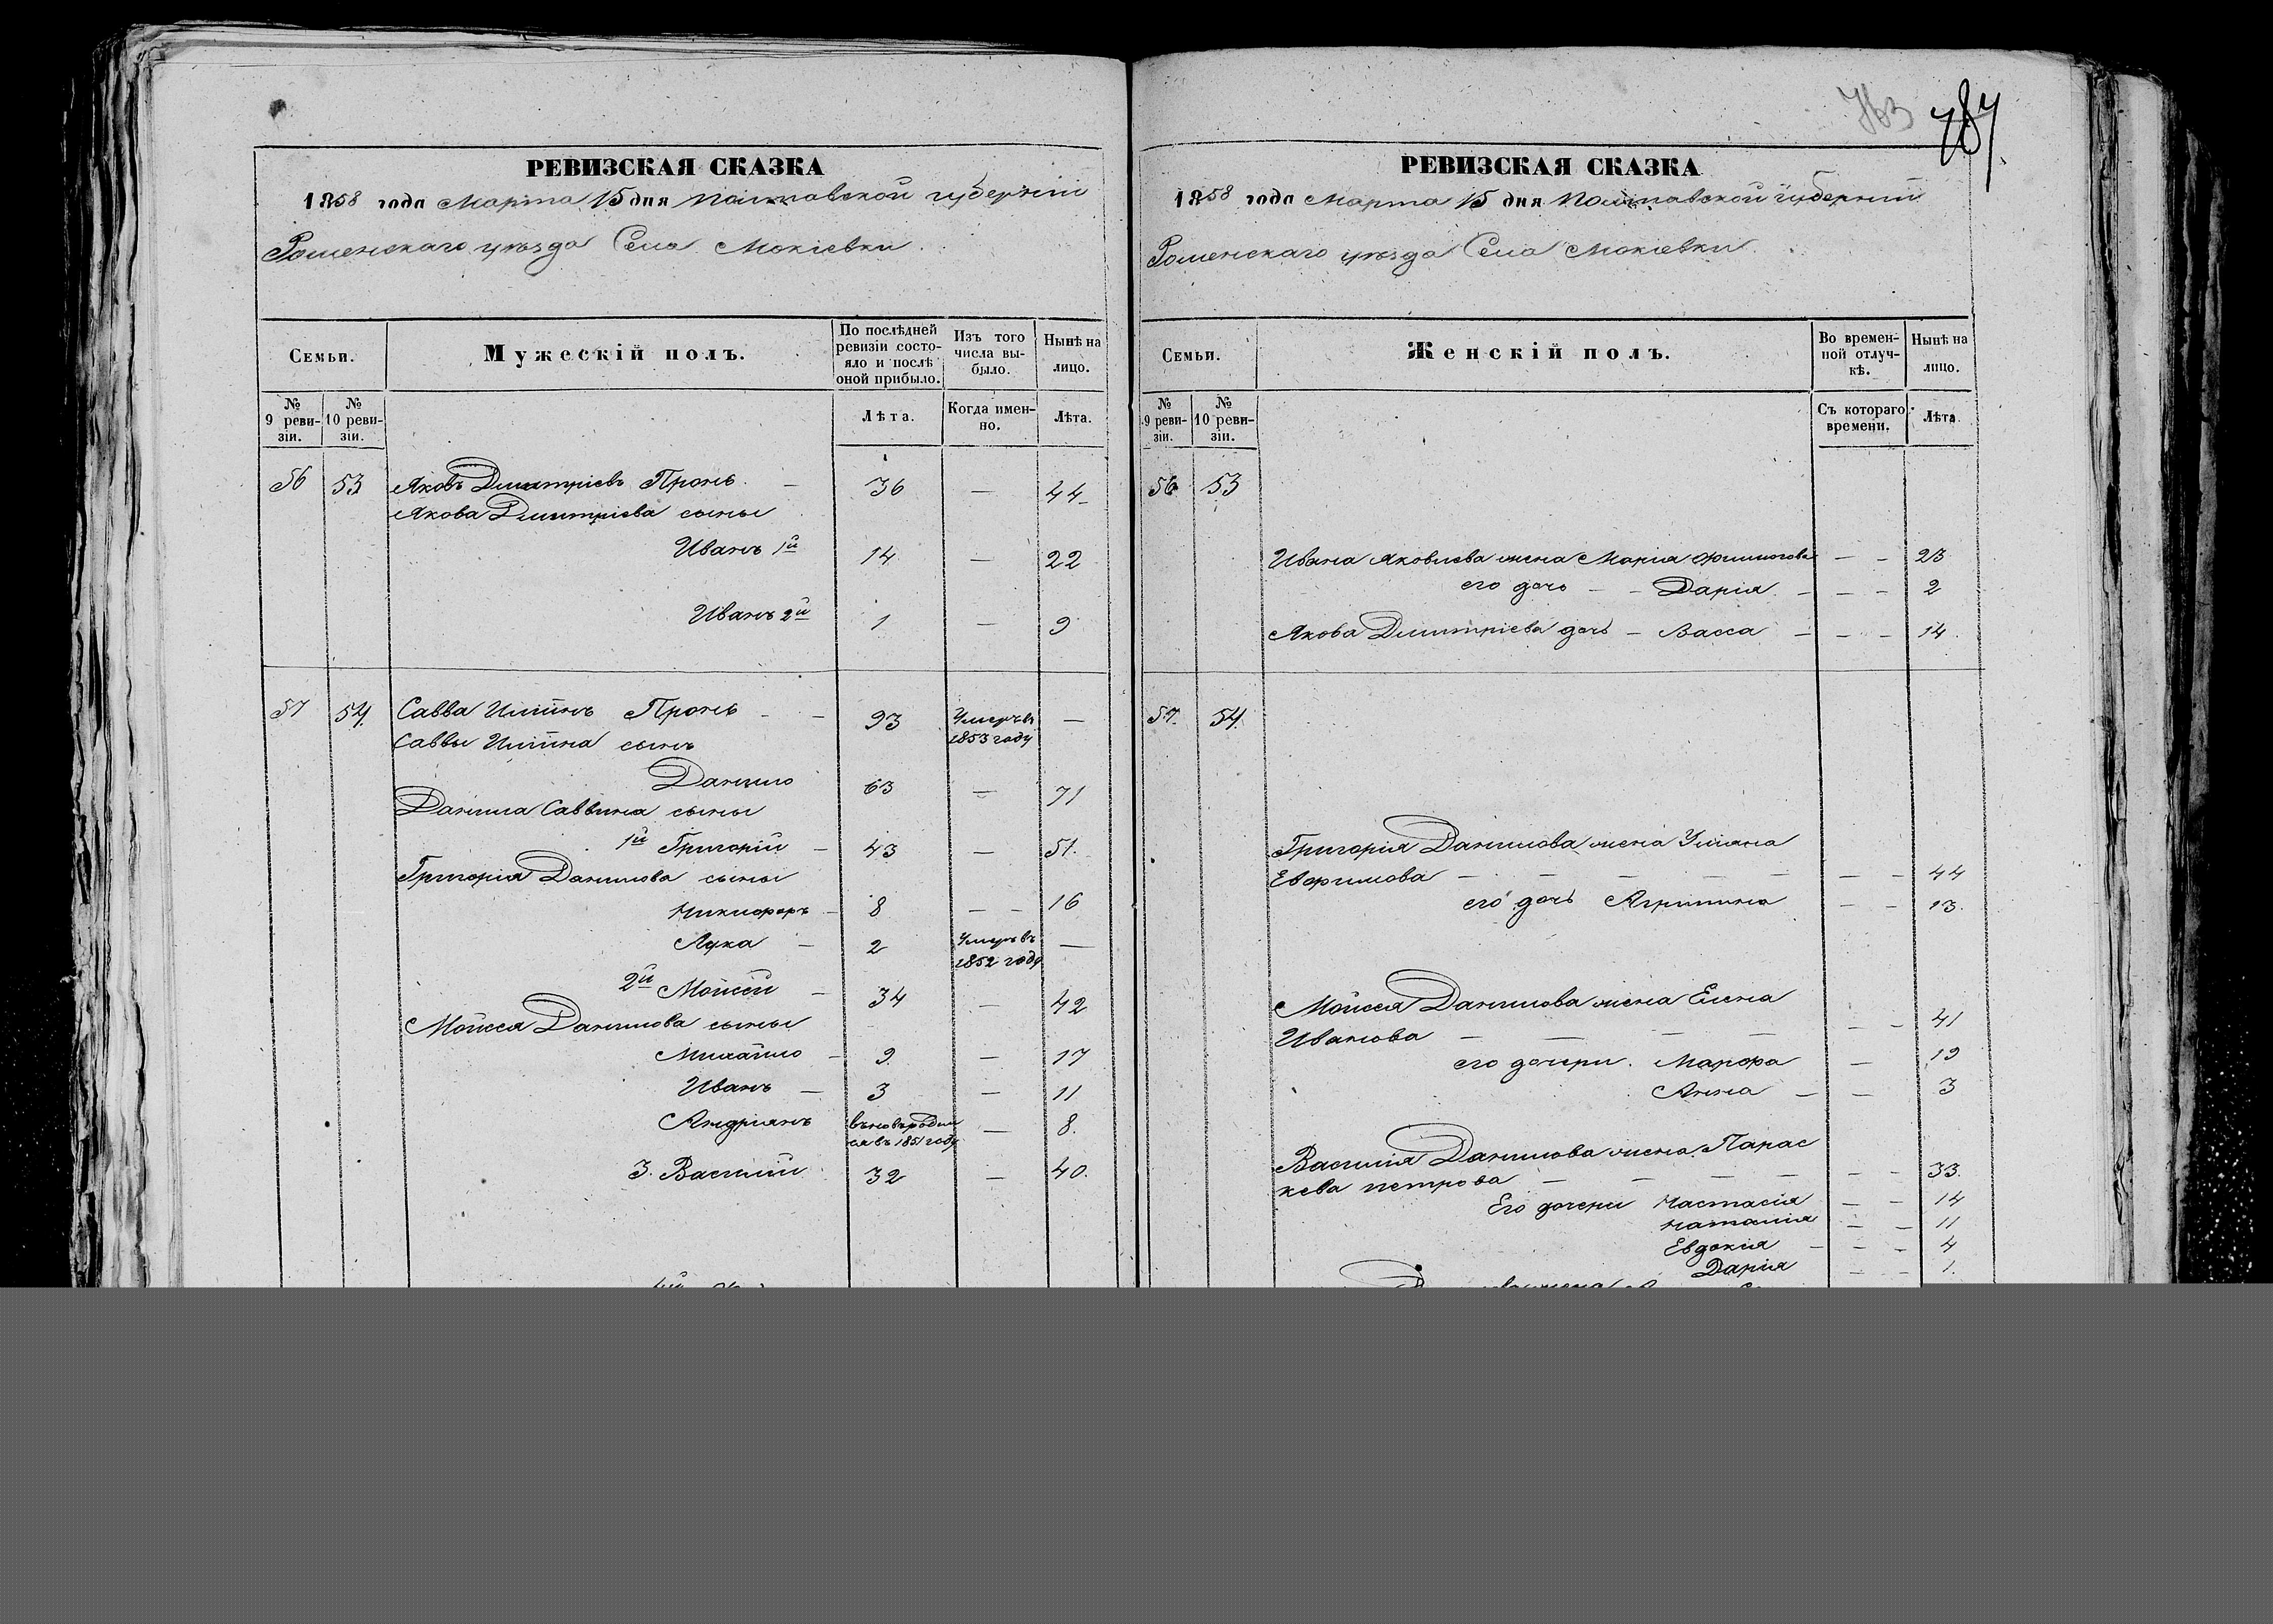 763 787
РЕВИЗСКАЯ СКАЗКА
1858 года Марта 15 дня Полтавской губерніи
Роменскаго уѣзда Села Мокіевки
Семьи.
Мужескій полъ.
По послѣдней ревизіи состояло и послѣ оной прибыло.
Изъ того числа выбыло.
Нынѣ на лицо.
№ 9 ревизіи.
№ 10 ревизіи.
Лѣта.
Когда именно.
Лѣта.
56 53 Яковъ Дмитріевъ Пронь. — 36 — 44
Якова Дмитріева сыны
Иванъ 1й 14 — 22
Иванъ 2й 1 — 9
57 54 Савва Ильинъ Пронь — — 93 Умеръ въ 1853 году —
Саввы Ильина сынъ
Данило 63 — 71
Данила Саввина сыны
1й Григорій — 43 — 51.
Григорія Данилова сыны
Никифоръ — 8 — — 16
Лука — 2 Умеръ въ 1852 году —
2й Моисей — 34 — 42
Моисея Данилова сыны
Михайло — 9. — 17
Иванъ — 3 — 11
Андріянъ 1851 году — 8.
3. Василий 32 — 40.
РЕВИЗСКАЯ СКАЗКА
1858 года Марта 15 дня Полтавской губерніи
Роменскаго уѣзда Села Мокіевки
Семьи.
Женскій полъ.
Во временной отлучкѣ.
Нынѣ на лицо.
№ 9 ревизіи.
№ 10 ревизіи.
Съ котораго времени.
Лѣта.
56 53
Ивана Яковлева жена Марія — — 23
его дочь — — Дарія — — — 2
Якова Дмитріева дочь — Васса — — — 14.
57. 54.
Григорія Данилова жена Уліяна
Евфимова — — — — — — — 44
его дочь Агрипина — — 13.
Моисея Данилова жена Елена
Иванова — — — — — — 41
его дочери. Марфа — 19
Анна — — 3
Василія Данилова жена Парас
кева петрова — — — — — — 33.
Его дочери Настасія — — 14
наталія — — 11
Евдокия — — — 4
Дарія — — 1.